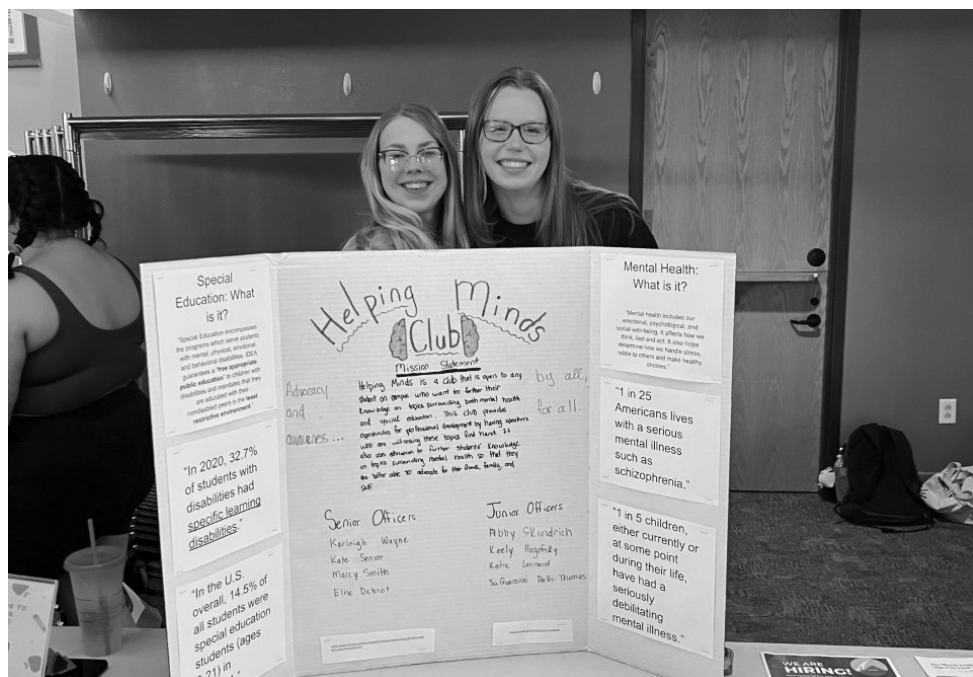 Special
Education: What
is it?
"Special Education encompasses
the programs which serve students
with mental, physical, emotional,
and behavioral disabilities. IDEA
guarantees a "free appropriate
public education" to children with
disabilities and mandates that they
are educated with their
nondisabled peers in the least
restrictive environment."
"In 2020, 32.7%
of students with
disabilities had
specific learning
disabilities."
"In the U.S.
overall, 14.5% of
all students were
special education
students (ages
21) in
Helping Minds
Club
Mission Statement
Advocacy
and
awareness...
Helping Minds is a club that is open to any
student on campus who want to further their
knowledge on topics surrounding both mental health
and special education. This club provides
opportunities for professional development by having speakers
who are witnessing these topics first hand. It
also uses education to further students' knowledge
on topics surrounding mental health so that they
are better able to advocate for their
family, and
self.
by all,
for all.
Senior Officers
Karleigh Wayne
Kate Senior
Marcy Smith
Elise Debrot
Junior Officers
Abby Skindrich
Keely
Katie Leonard
Thomas
Mental Health:
What is it?
"Mental health includes our
emotional, psychological, and
social well-being. It affects how we
think, feel and act. It also helps
determine how we handle stress,
relate to others and make healthy
choices."
"1 in 25
Americans lives
with a serious
mental illness
such as
schizophrenia."
"1 in 5 children,
either currently or
at some point
during their life,
have had a
seriously
debilitating
mental illness."
WE ARE
HIRING!